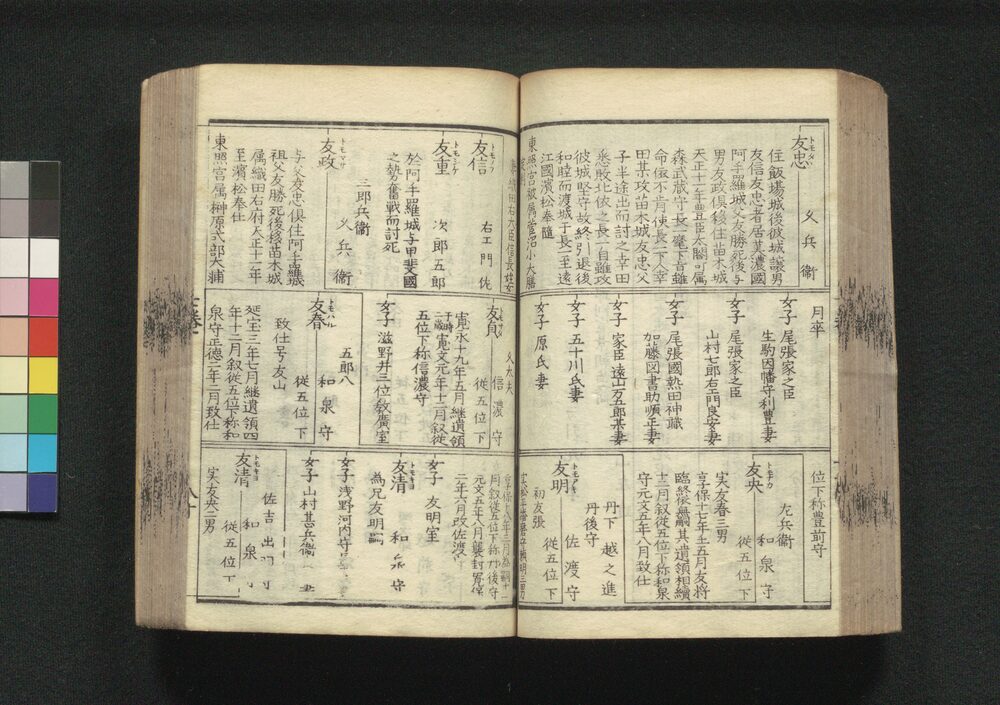 トモタダ
友忠
久兵衞
住飯場城後彼城譲男
友信友忠者居美濃國
阿手羅城父友勝死後与
男友政倶移住苗木城
天正十一年豊臣太閤可属
森武蔵守長一麾下旨雖
命儘不肯使長一下久幸
田某攻苗木城友忠父
子半途出而討之幸田
悉敗北依之長一自雖攻
彼城堅守故終引退後
和睦而渡城于長一至遠
江國濱松奉隨
東照宮被属菅沼小大膳
月卒
女子 尾張家之臣
生駒因幡守利豊妻
女子 尾張家之臣
山村七郎右エ門良安妻
女子 尾張國熱田神職
加藤図書助順正妻
女子 家臣遠山万五郎某妻
女子 五十川氏妻
女子 原氏妻
位下称豊前守
トモナカ
友央
左兵衞
和泉守
従五位下
実友春三男
享保十七年壬五月友将
臨終為嗣其遺領相續
十二月叙従五位下称和泉
守元文五年八月致仕
トモアキ
友明
丹下 越之進
丹後守
佐渡守
従五位下
初友張
トモノフ
友信
右エ門佐
トモシケ
友重
次郎五郎
於阿手羅城与甲斐國
之勢奮戦而討死
トモマサ
友政
三郎兵衞
久兵衞
与父友忠倶住阿手羅城
祖父友勝死後移苗木城
属織田右府天正十一年
至濱松奉仕
東照宮属榊原式部大輔
友貞
信濃守
従五位下
寛永十九年五月継遺領
寛文元年十二月叙従
五位下称信濃守
女子 滋野井三位教廣室
トモハル
友春
五郎八
和泉守
従五位下
致仕号友山
延宝三年七月継遺領四
年十二月叙従五位下称和
泉守正徳二年二月致仕
元文五年八月襲封寛保
二年六月改佐渡守
女子 友明室
トモキヨ
友清
和泉守
為兄友明嗣
女子 浅野河内守
女子 山村甚兵衞 妻
トモキヨ
友清
佐吉
和泉
従五位下
実友央二男